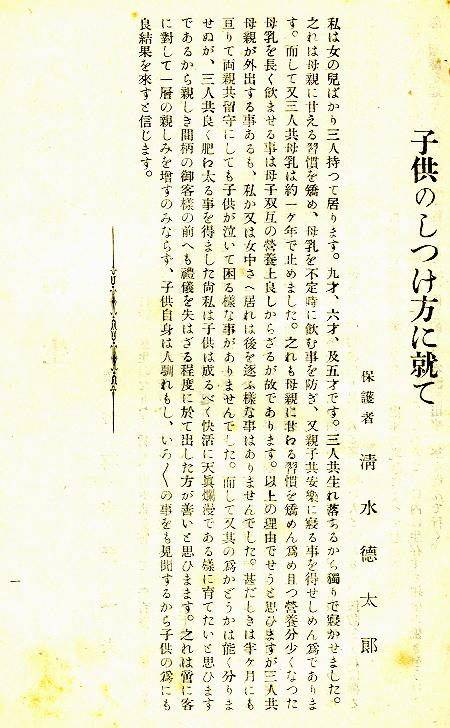 子供のしつけ方に就て
保護者　清水德太郞
私は女の兒ばかり三人持つて居ります。九才、六才、及五才です。三人共生れ落ちるから獨りで寢かせました。
之れは母親に甘える習慣を矯め、母乳を不定時に飮む事を防ぎ、又親子共安樂に寢る事を得せしめん爲でありま
す。而して又三人共母乳は約一ケ年で止めました。之れも母親に甘わる習慣を矯めん爲め且つ營養分少くなつた
母乳を長く飮ませる事は母子双互の營養上良しからざるが故であります。以上の理由でせうと思ひますが三人共
母親が外出する事あるも、私か又は女中さへ居れは後を逐ふ樣な事はありませんでした。甚だしきは半ケ月にも
亘りて兩親共留守にしても子供が泣いて困る樣な事がありませんでした。而して又其の爲かどうかは能く分りま
せぬが、三人共良く肥わ太る事を得ました尙私は子供は成るべく快活に天眞爛漫である樣に育てたいと思ひます
であるから親しき間柄の御客樣の前へも禮儀を失はざる程度に於て出した方が善いと思ひます。之れは啻に客
に對して一層の親しみを增すのみならず、子供自身は人馴れもし、いろ〱の事をも見聞するから子供の爲にも
良結果を來すと信じます。
一